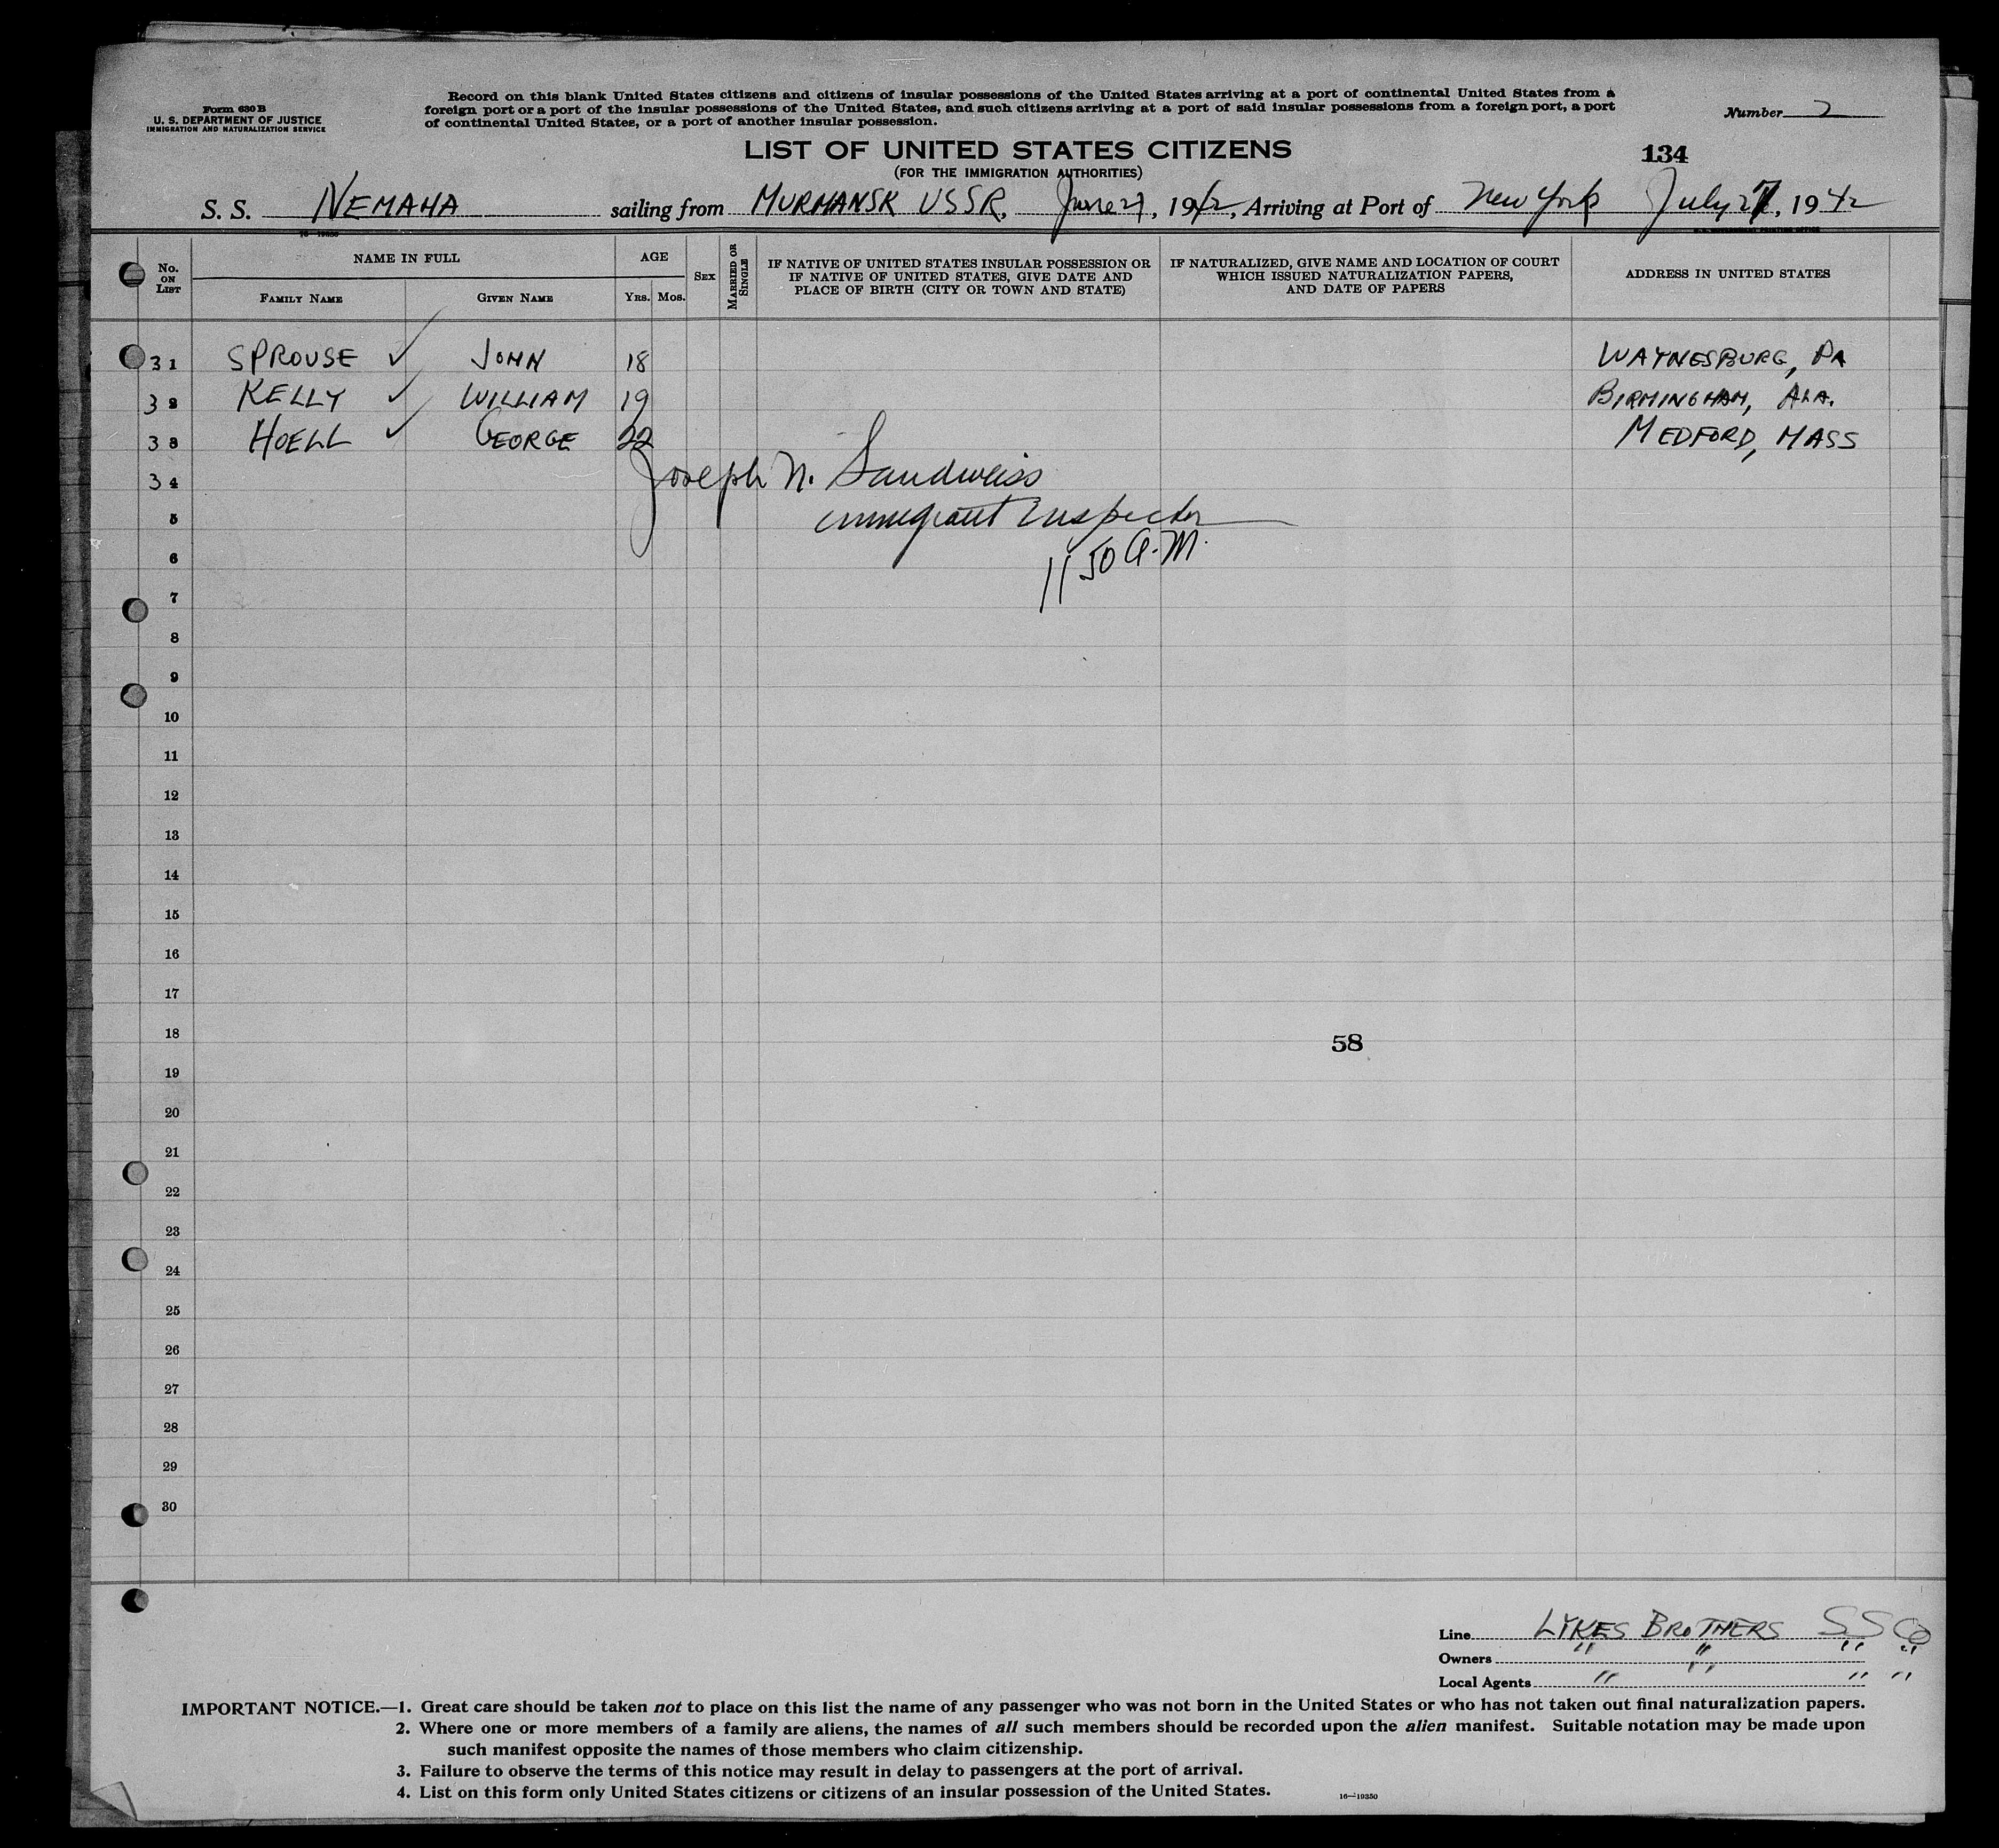 Form 630 B
U. S. DEPARTMENT OF JUSTICE
IMMIGRATION AND NATURALIZATION SERVICE
Record on this blank United States citizens and citizens of insular possessions of the United States arriving at a port of continental United States from a
foreign port or a port of the insular possessions of the United States, and such citizens arriving at a port of said insular possessions from a foreign port, a port
of continental United States, or a port of another insular possession.
Number 2
LIST OF UNITED STATES CITIZENS
(FOR THE IMMIGRATION AUTHORITIES)
134
S. S. NEMAHA sailing from MURMANSK USSR, June 27, 1942, Arriving at Port of New York July 27, 1942
16—19350
U. S. GOVERNMENT PRINTING OFFICE
No. ON LIST
NAME IN FULL
FAMILY NAME
GIVEN NAME
AGE
YRS. MOS.
SEX
MARRIED OR SINGLE
IF NATIVE OF UNITED STATES INSULAR POSSESSION OR
IF NATIVE OF UNITED STATES, GIVE DATE AND
PLACE OF BIRTH (CITY OR TOWN AND STATE)
IF NATURALIZED, GIVE NAME AND LOCATION OF COURT
WHICH ISSUED NATURALIZATION PAPERS,
AND DATE OF PAPERS
ADDRESS IN UNITED STATES
31 SPROUSE ✓ JOHN 18 WAYNESBURG, PA
32 KELLY ✓ WILLIAM 19 BIRMINGHAM, ALA.
33 HOELL ✓ GEORGE 22 MEDFORD, MASS
34 Joseph N. Sandweiss
5 Immigrant Inspector
6 11 50 A.M.
7
8
9
10
11
12
13
14
15
16
17
18 58
19
20
21
22
23
24
25
26
27
28
29
30
Line LYKES BROTHERS S S Co
Owners " " " "
Local Agents " " " "
IMPORTANT NOTICE.—1. Great care should be taken not to place on this list the name of any passenger who was not born in the United States or who has not taken out final naturalization papers.
2. Where one or more members of a family are aliens, the names of all such members should be recorded upon the alien manifest. Suitable notation may be made upon
such manifest opposite the names of those members who claim citizenship.
3. Failure to observe the terms of this notice may result in delay to passengers at the port of arrival.
4. List on this form only United States citizens or citizens of an insular possession of the United States.
16—19350